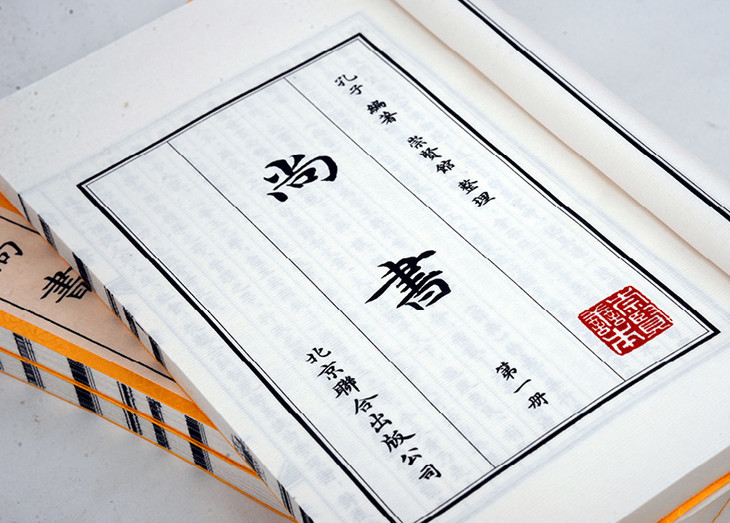 孔子 編著 崇賢館 整理
尚書
第一册
北京聯合出版公司
尚書